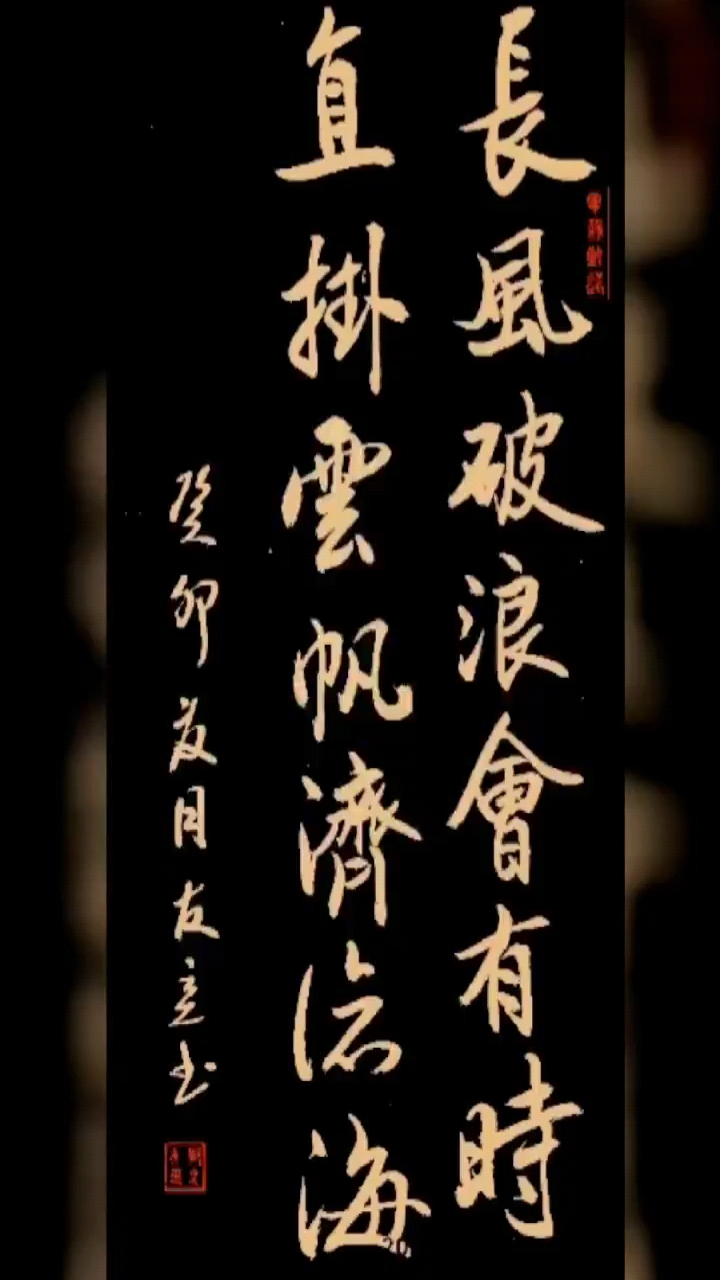 長風破浪會有時
直掛雲帆濟滄海
癸卯夏月友立书